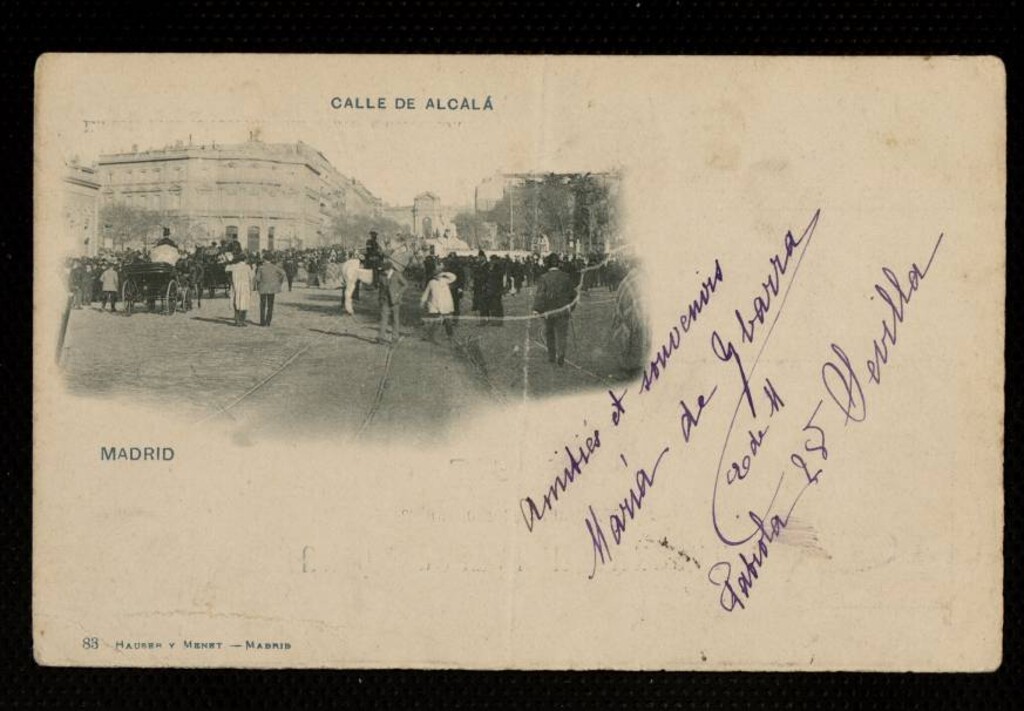 CALLE DE ALCALÁ
MADRID
Amitiés et souvenirs
María de Ybarra
de M
Fabiola 25 Sevilla
83 HAUSER Y MENET — MADRID